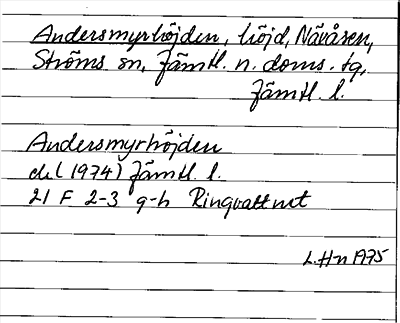 Andersmyrhöjden, höjd, Nävåsen,
Ströms sn, Jämtl. n. doms. tg,
Jämtl. l.
Andersmyrhöjden
del (1974) Jämtl. l.
21 F 2-3 g-h Ringvattnet
L.Hn 1975